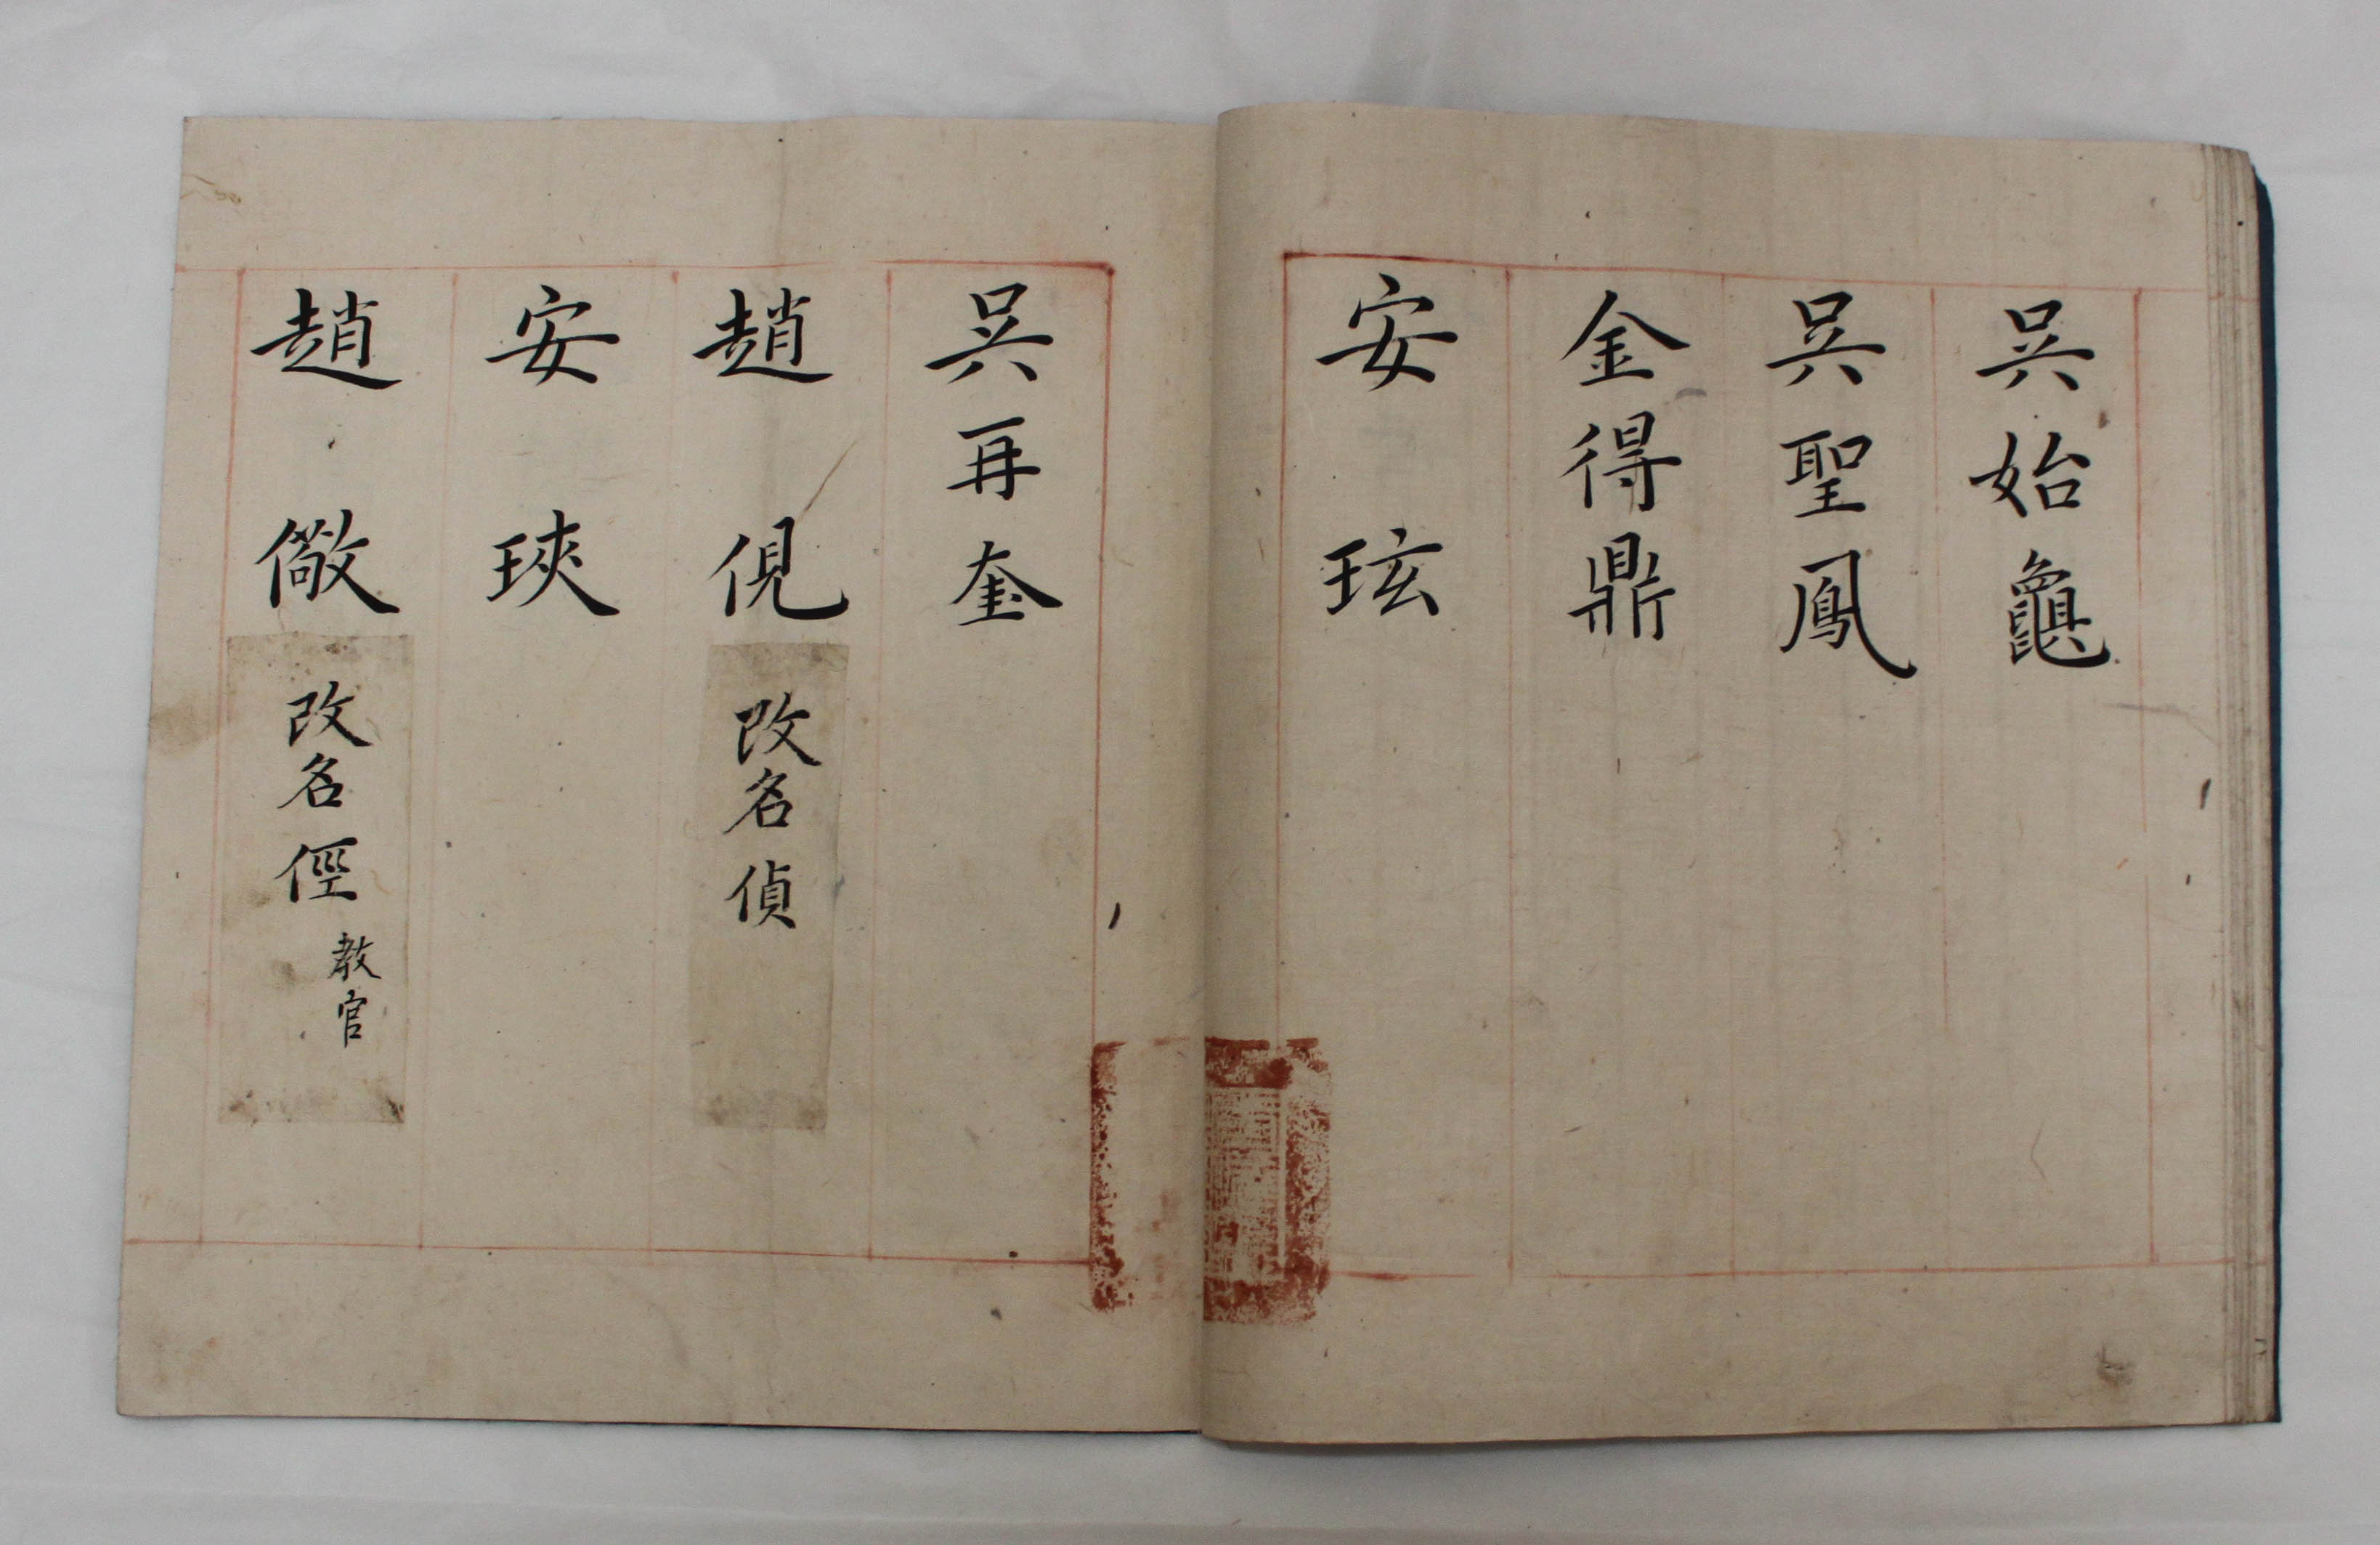 吳始龜
吳聖鳳
金得鼎
安玹
吳再奎
趙俔
改名偵
安琰
趙儆
改名俓
教官